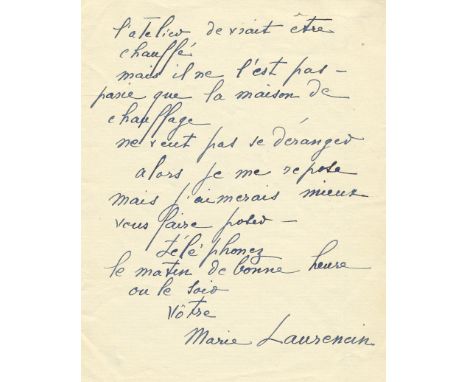 l'atelier devrait être
chauffé
mais il ne l'est pas -
parce que la maison de
chauffage
ne veut pas se déranger
alors je me repose
mais j'aimerais mieux
vous faire poser -
téléphonez
le matin de bonne heure
ou le soir
Vôtre
Marie Laurencin